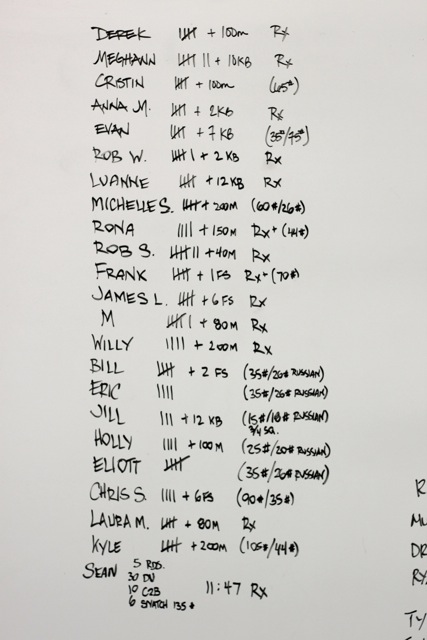 DEREK 𝍸 + 100m Rx
MEGHANN 𝍸 || + 10KB Rx
CRISTIN 𝍸 + 100m (65#)
ANNA M. 𝍸 + 2KB Rx
EVAN 𝍸 + 7 KB (35#/75#)
ROB W. 𝍸 | + 2 KB Rx
LUANNE 𝍸 + 12 KB Rx
MICHELLE S. 𝍸 + 200M (60#/26#)
RONA |||| + 150M Rx+ (44#)
ROB S. 𝍸 || + 40M Rx
FRANK 𝍸 + 1 FS Rx+ (70#)
JAMES L. 𝍸 + 6 FS Rx
M 𝍸 | + 80M Rx
WILLY |||| + 200M Rx
BILL 𝍸 + 2 FS (35#/26# RUSSIAN)
ERIC |||| (35#/26# RUSSIAN)
JILL ||| + 12 KB (15#/18# RUSSIAN)
HOLLY |||| + 100M (25#/20# RUSSIAN)
ELIOTT 𝍸 (35#/26# RUSSIAN)
CHRIS S. |||| + 6 FS (90#/35#)
LAURA M. 𝍸 + 80M Rx
KYLE 𝍸 + 200M (105#/44#)
SEAN 5 RDS.
30 DU
10 C2B 11:47 Rx
6 SNATCH 135#
R
MU
DR
RY
TY